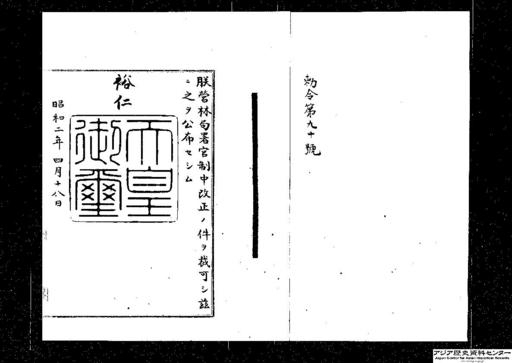 勅令第九十號
朕營林局署官制中改正ノ件ヲ裁可シ茲
ニ之ヲ公布セシム
裕仁
天皇
御璽
昭和二年四月十八日
アジア歴史資料センター
Japan Center for Asian Historical Records